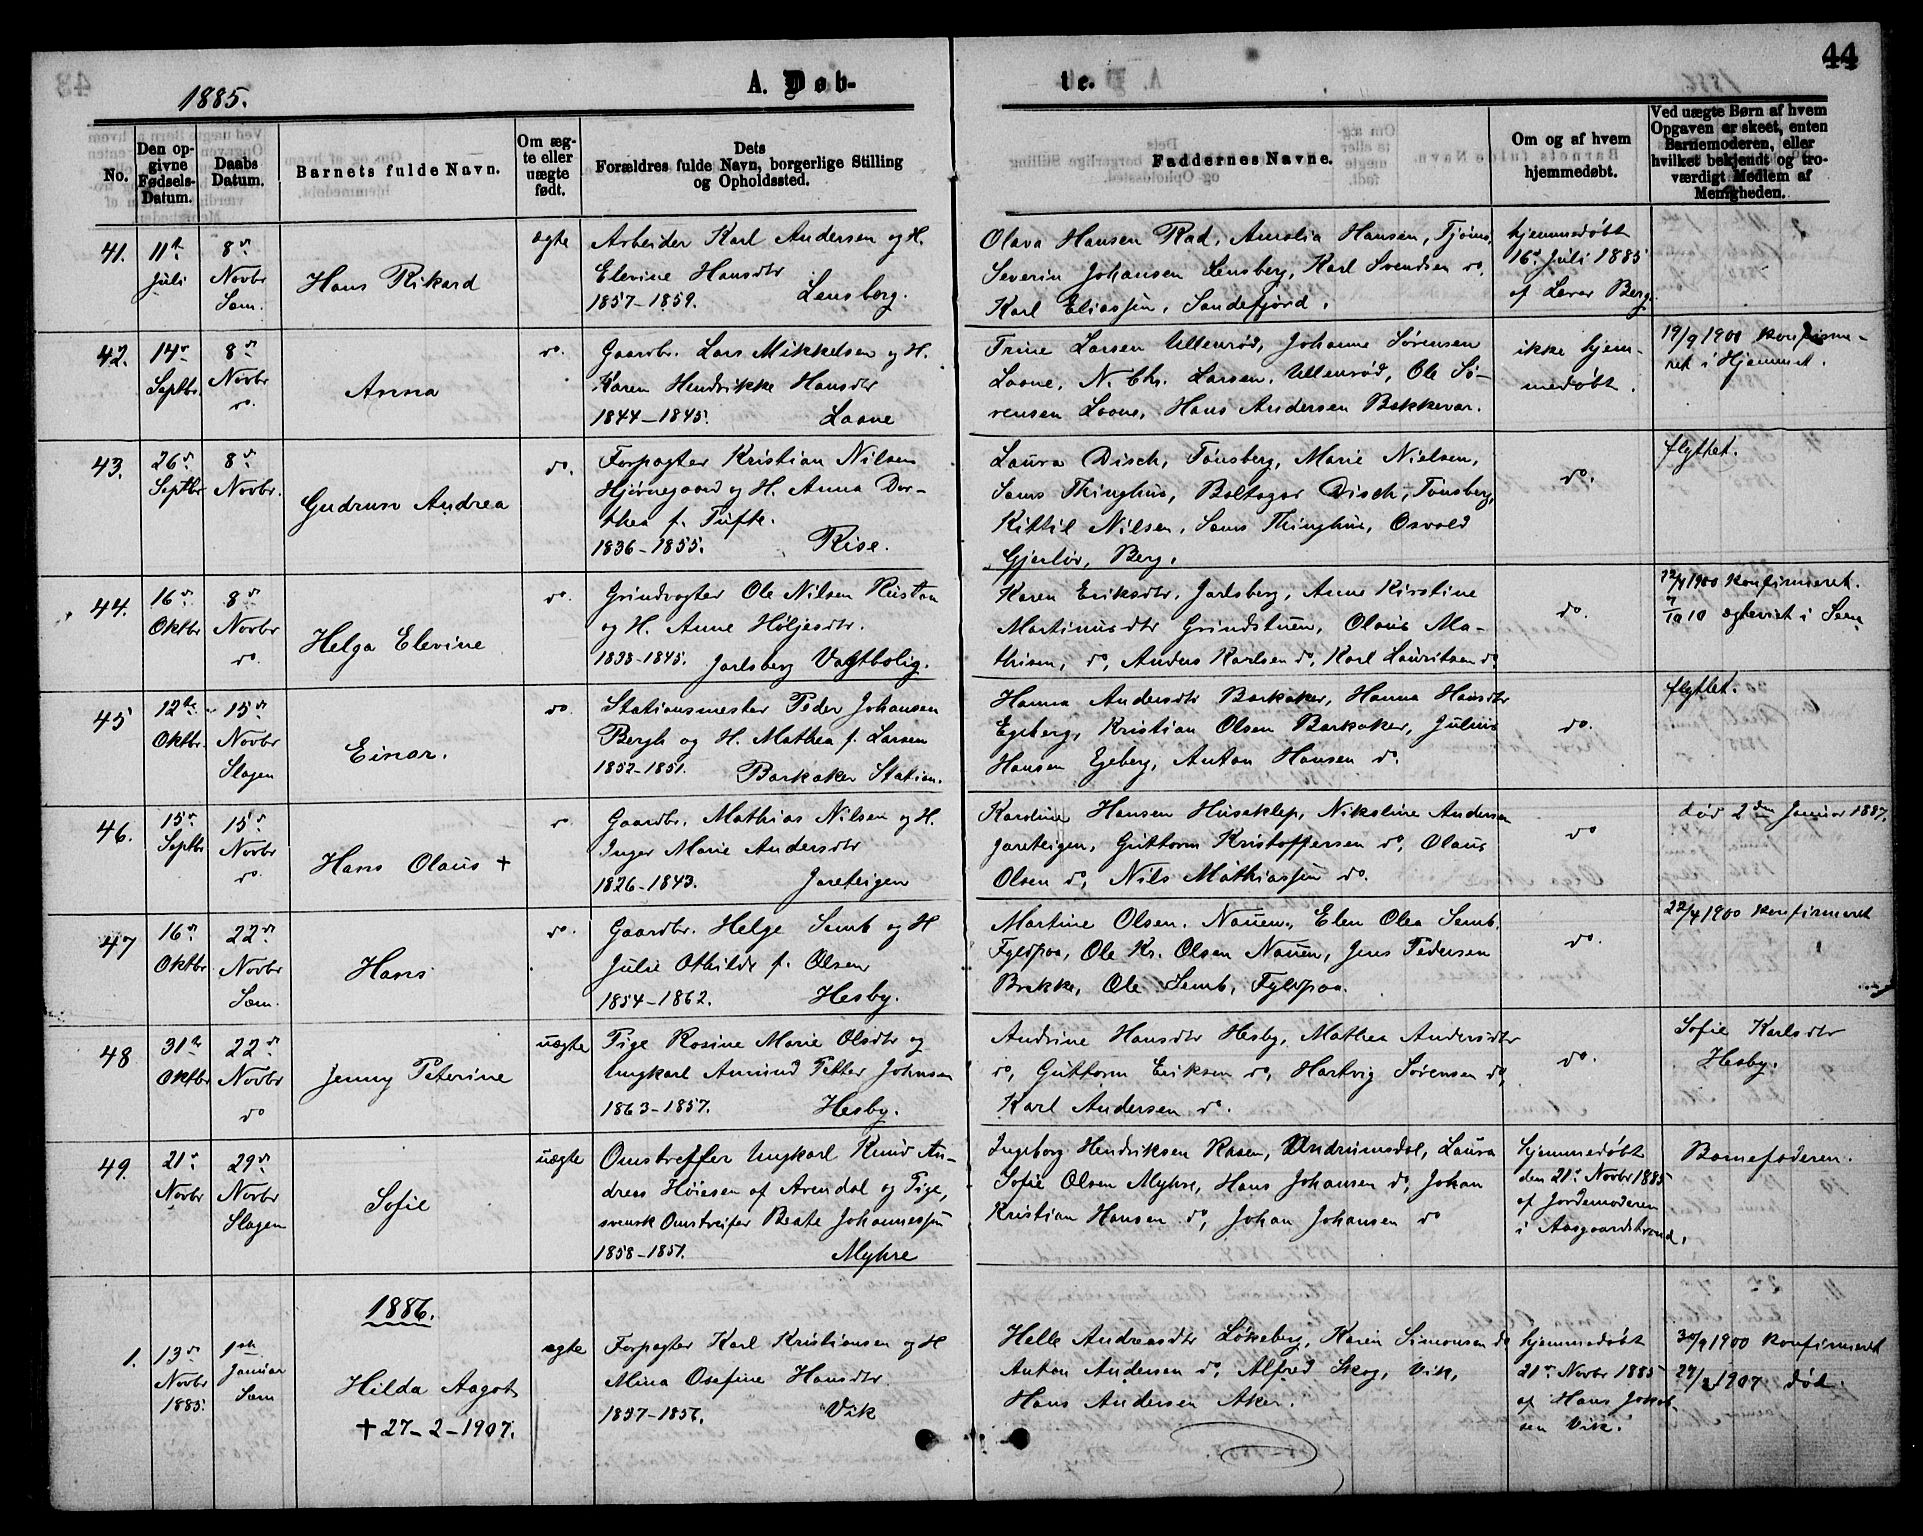 44
1885.
A. Døb-
te.
No.
Den op-
givne
Fødsels-
Datum.
Daabs
Datum.
Barnets fulde Navn.
Om æg-
te eller
uægte
født.
Dets
Forældres fulde Navn, borgerlige Stilling
og Opholdssted.
Faddernes Navne.
Om og af hvem
hjemmedøbt.
Ved uægte Børn af hvem
Opgaven er skeet, enten
Barnemoderen, eller
hvilket bekjendt og tro-
værdigt Medlem af
Menigheden.
41.
11te
Juli
8de
Novbr
Sem.
Hans Rikard
ægte
Arbeider Karl Andersen og H.
Elevine Hansdtr
1857-1859. Lensberg.
Olava Hansen Rad, Amalia Hansen, Tjømø,
Severin Johansen Lensberg, Karl Svendsen do,
Karl Eliassen, Sandefjord.
hjemmedøbt
16de Juli 1885
af Berg.
42.
14de
Septbr.
8de
Novbr
do.
Anna
do.
Gaardbr. Lars Mikkelsen og H.
Karen Hendrikke Hansdtr
1844-1845. Laane
Trine Larsen Ullenrød, Johanne Sørensen
Laane, N. Chr. Larsen, Ullenrød, Ole Sø-
rensen Laane, Hans Andersen Bakkevar.
ikke hjem-
medøbt.
19/9 1900 konfirme-
ret i Hjemmet.
43.
26de
Septbr
8de
Novbr.
Gudrun Andrea
do.
Forpagter Kristian Nilsen
Hjørnegaard og H. Anna Dor-
thea f. Tufte.
1836-1855. Rise.
Laura Disch, Tønsberg, Marie Nielsen,
Sems Thinghus, Baltazar Disch, Tønsberg,
Kittil Nilsen, Sems Thinghus, Osvald
Gjerløv, Berg.
do.
flyttet.
44.
16de
Oktbr
8de
Novbr
do.
Helga Elevine
do.
Grindvogter Ole Nilsen Rustan
og H. Anne Høljesdtr.
1838-1845. Jarlsberg Vagtbolig.
Karen Eriksdtr, Jarlsberg, Anne Kirstine
Martinusdtr Grindstuen, Olaus Ma-
thisen, do, Anders Karlsen do, Karl Lauritsen do
do.
22/4 1900 konfirmeret.
9/10 10 ægteviet i Sem
45
12te
Oktbr.
15de
Novbr
Slagen
Einar.
do.
Stationsmester Peder Johansen
Bergh og H. Mathea f. Larsen
1852-1851. Barkaker Station.
Hanna Andersdtr Barkaker, Hanna Hansdtr
Egeberg, Kristian Olsen Barkaker, Julius
Hansen Egeberg, Anton Hansen do.
do.
flyttet.
46.
15de
Septbr
15de
Novbr
do.
Hans Olaus +
do
Gaardbr. Mathias Nilsen og H.
Inger Marie Andersdtr
1826-1843. Jareteigen
Karoline Hansen Huseklep, Nikoline Andersen
Jareteigen, Guttorm Kristoffersen do, Olaus
Olsen do, Nils Mathiassen do.
do
død 2den Januar 1887.
47
16de
Oktbr
22de
Novbr
Sem.
Hans
do.
Gaardbr. Helge Semb og H
Julie Othilde f. Olsen
1854-1862. Hesby.
Martine Olsen, Nauen, Elen Olea Semb,
Fyldpaa, Ole Kr. Olsen Nauen, Jens Pedersen
Brekke, Ole Semb, Fyldpaa.
do.
22/4 1900 konfirmeret
48
31te
Oktbr
22de
Novbr
do
Jenny Peterine
uægte
Pige Rosine Marie Olsdtr og
Ungkarl Amund Petter Johnsen
1863-1857. Hesby.
Andrine Hansdtr Hesby, Mathea Andersdtr
do, Guttorm Eriksen do, Hartvig Sørensen do,
Karl Andersen do.
do.
Sofie Karlsdtr
Hesby.
49.
21de
Novbr
29de
Novbr
Slagen
Sofie
uægte
Omstreffer Ungkarl Knud An-
dreas Høiesen af Arendal og Pige,
svensk Omstreifer Beate Johannessen
1858-1851. Myhre
Ingeborg Hendriksen Rasen, Undrumsdal, Laura
Sofie Olsen Myhre, Hans Johansen do, Johan
Kristian Hansen do, Johan Johansen do
hjemmedøbt
den 21de Novbr 1885
af Jordemoderen
i Aasgaardstrand.
Barnefaderen.
1886.
1.
13de
Novbr
1885.
1ste
Januar
Sem
Hilda Aagot
+ 27-2-1907.
ægte
Forpagter Karl Kristiansen og H
Mina Osefine Hansdtr
1857-1856. Vik
Helle Andreasdtr Løkeberg, Karen Simonsen do
Anton Andersen do, Alfred Skog, Vik,
Hans Andersen Aker.
hjemmedøbt
21de Novbr 1885
af Hans Jakob-
sen Vik.
30/9 1900 konfirmeret
27/2 1907 død.